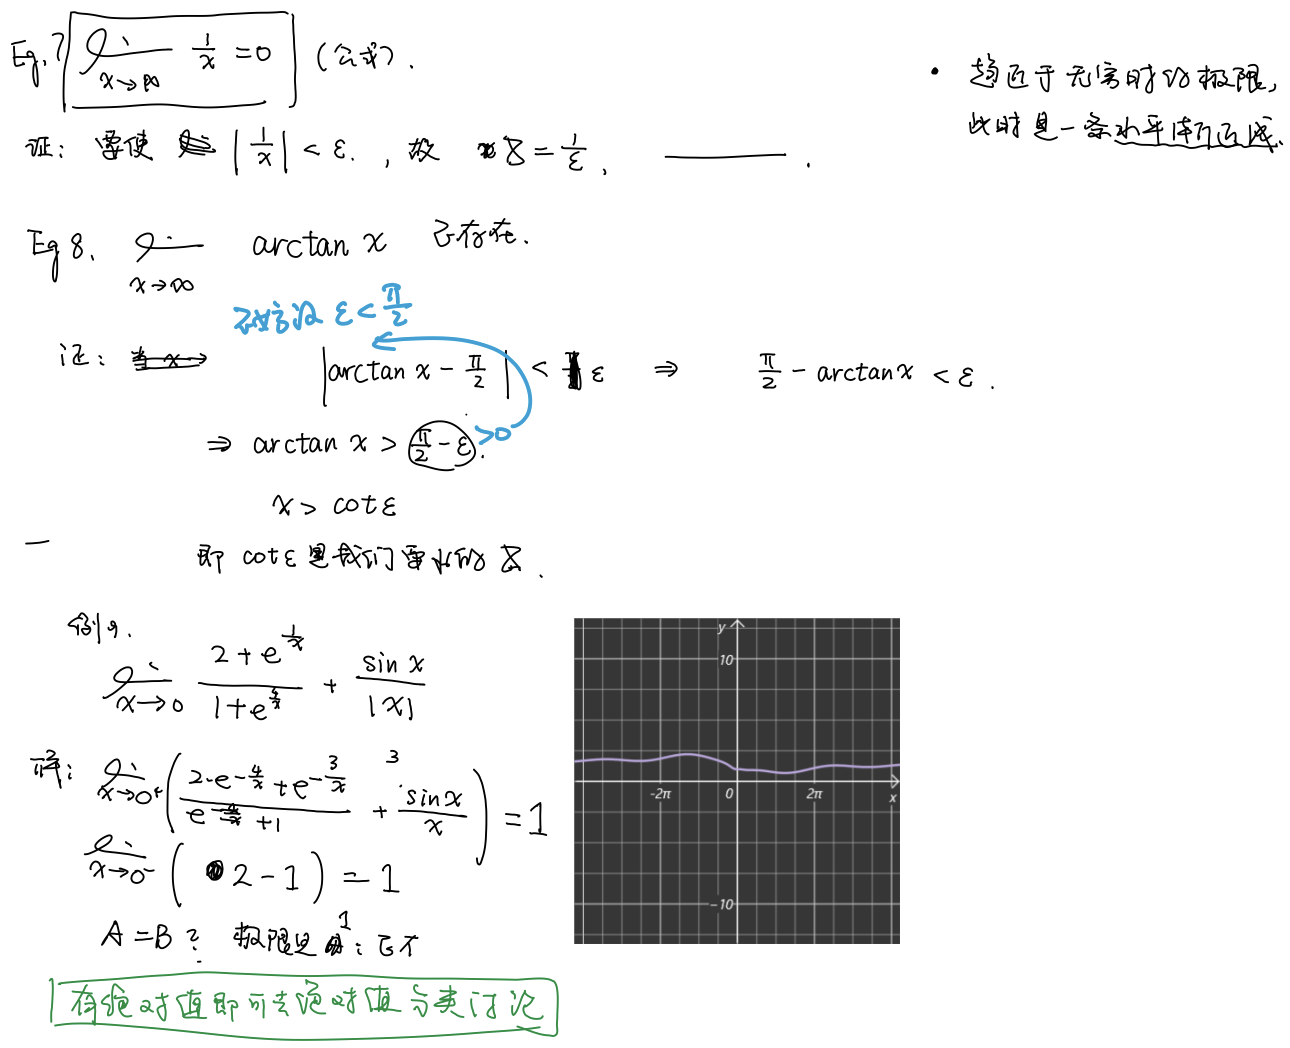 Eg.7 lim x→∞ 1/x = 0 (公式).
证: 要使 |1/x| < ε. , 故 X = 1/ε, ——— .
• 趋近于无穷时的极限,
此时是一条水平渐近线.
Eg 8. lim x→∞ arctan x 不存在.
不妨设 ε < π/2
证: |arctan x − π/2| < ε ⇒ π/2 − arctan x < ε .
⇒ arctan x > π/2 − ε >0 .
x > cot ε
即 cot ε 是我们要求的 X .
例9.
lim x→0 (2 + e^(1/x))/(1 + e^(4/x)) + sin x/|x|
解: lim x→0⁺ ((2·e^(−4/x) + e^(−3/x))/(e^(−4/x) + 1) + sin x/x) = 1
3
lim x→0⁻ (2 − 1) = 1
A = B ? 极限是 1 : 不
有绝对值即可去绝对值分类讨论
y
10
-2π 0 2π x
-10